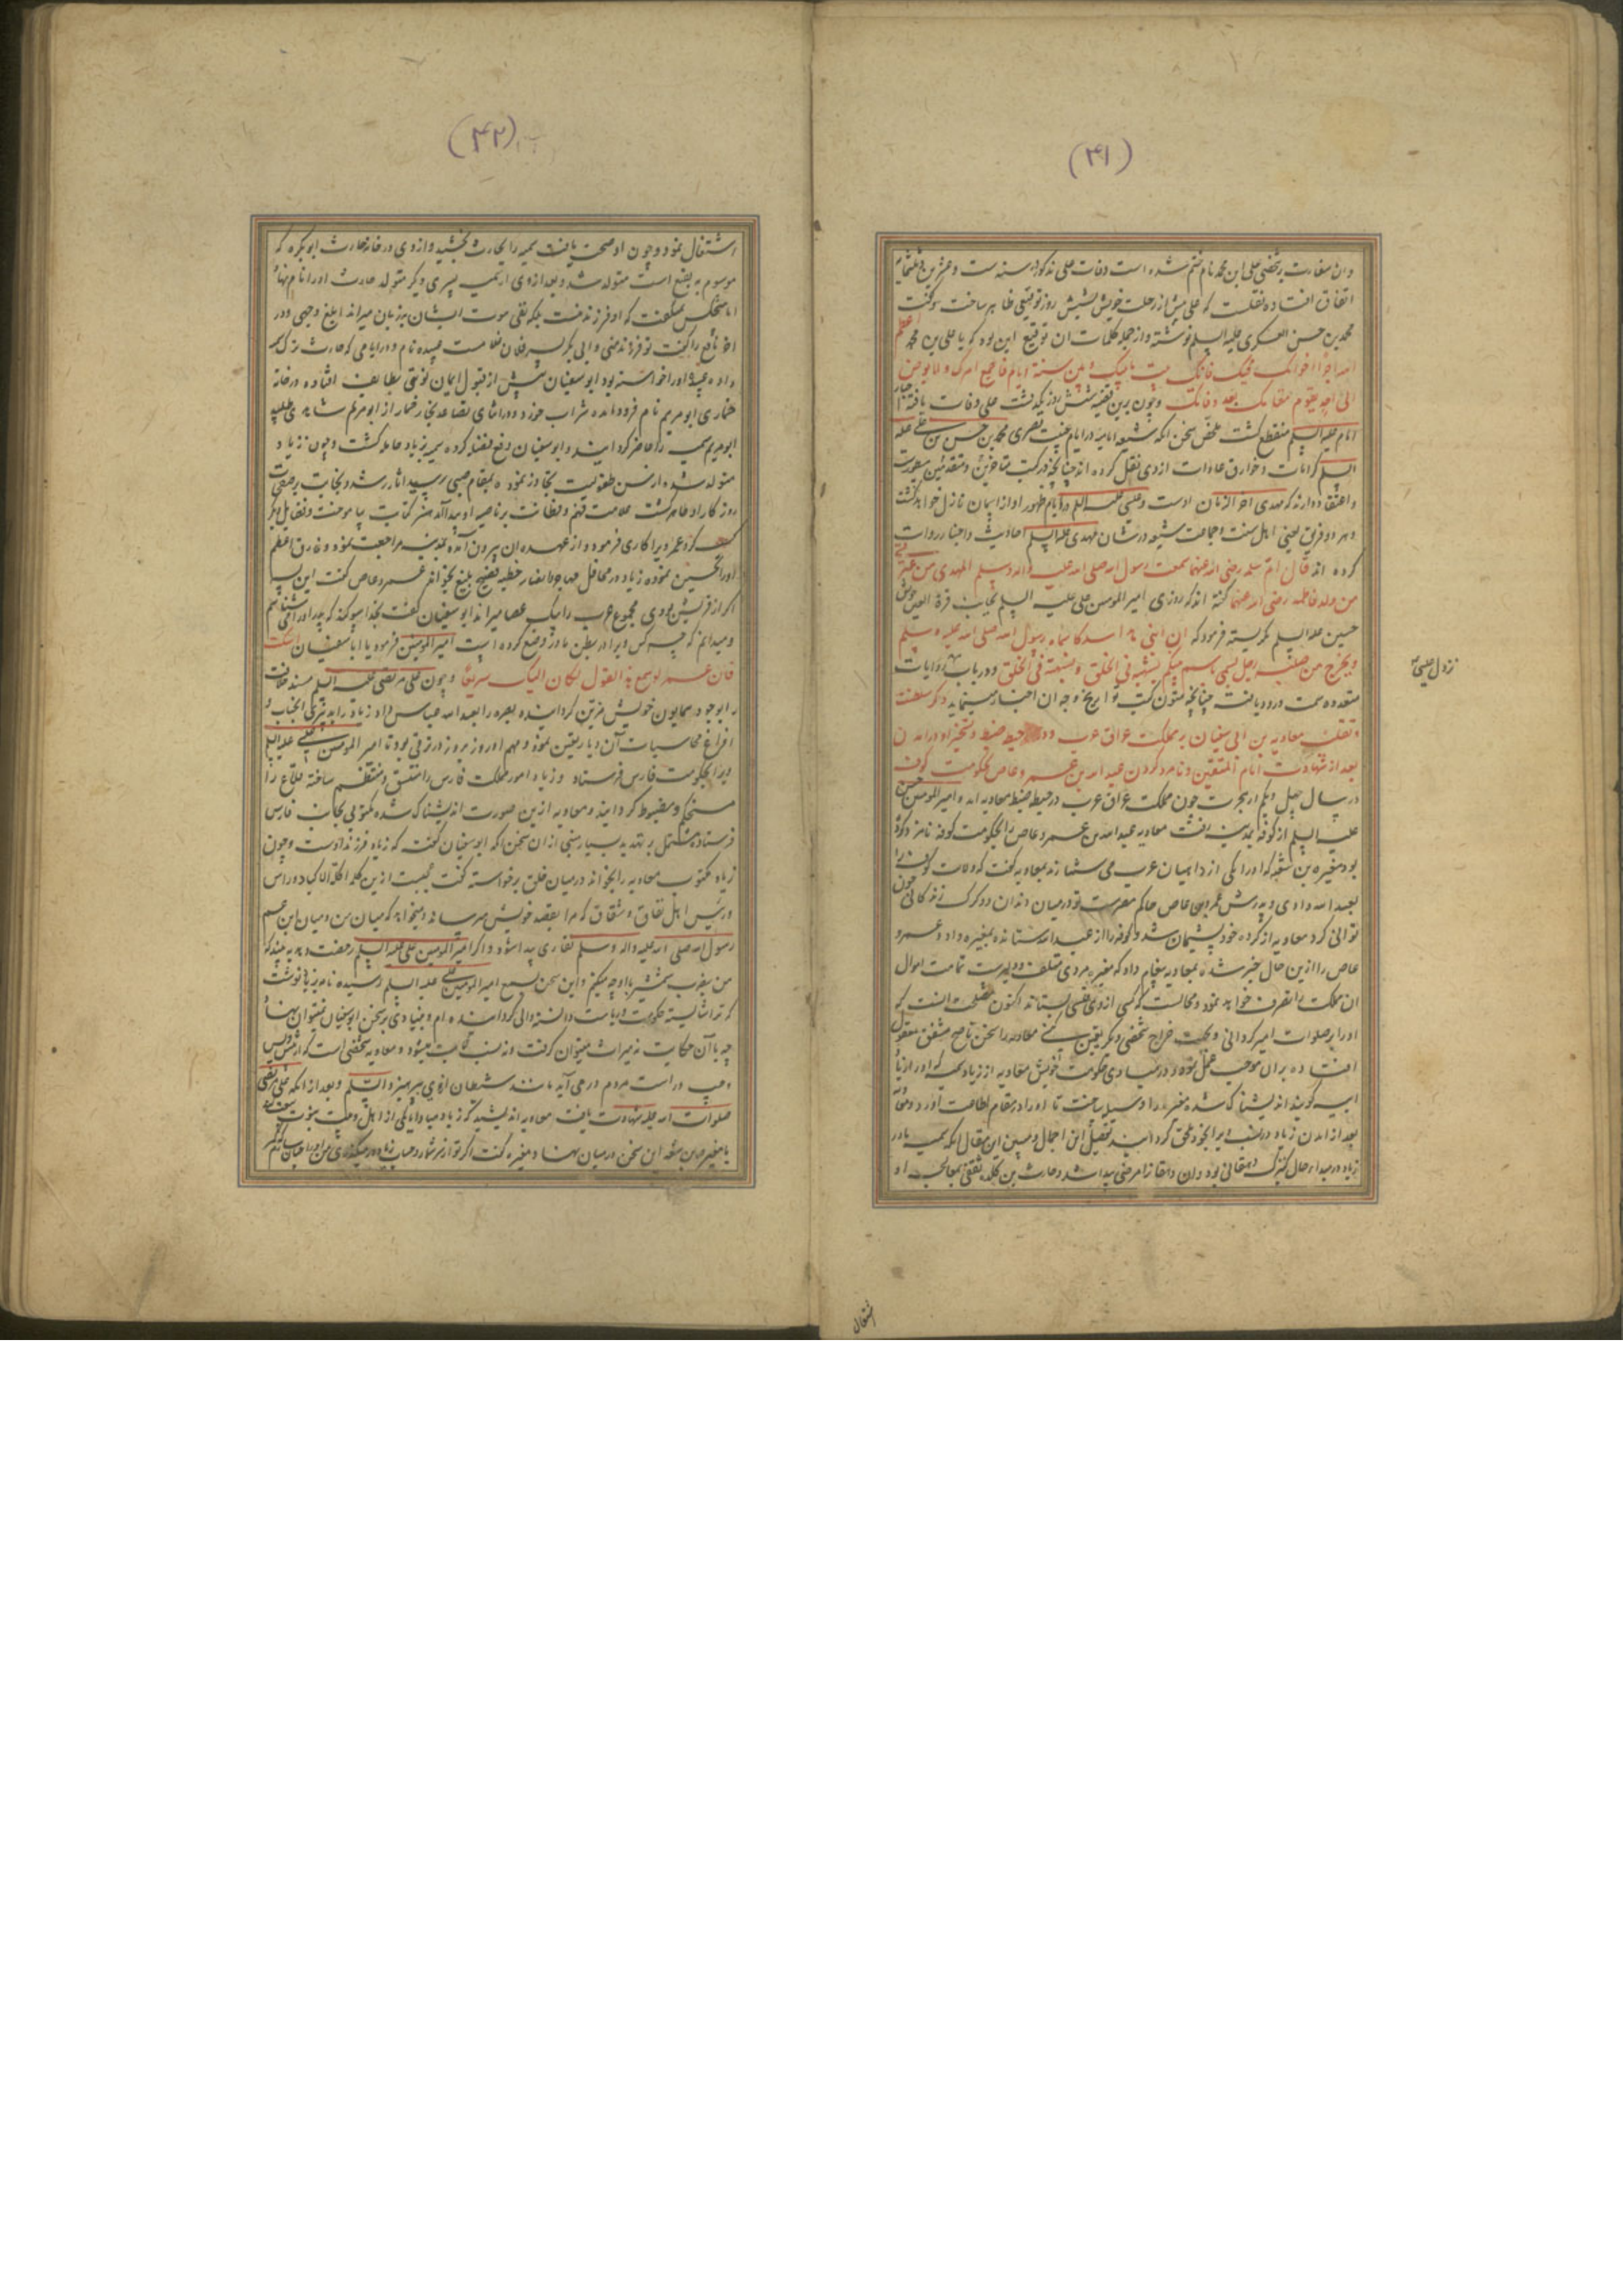 (۴۱)
وان سفارت بشخصی علی ابن محمد نام ختم شده است وفات علی مذکور در سنه ست و عشرین و ثلثمایه
اتفاق افتاده نقلست که علی پیش از رحلت خویش بشش روز توقیعی ظاهر ساخت که
محمد بن حسن العسکری علیه السلم نوشته و از جمله کلمات ان توقیع این بود که یا علی بن محمد اعظم
الله اجر اخوانک فیک فانک میت ما بینک و بین ستة ایام فاجمع امرک و لا توص
الی احد یقوم مقامک بعد وفاتک و چون برین قضیه شش روز بگذشت علی وفات یافته اخبار
امام علیه السلم منقطع گشت ملخص سخن انکه شیعه امامیه در ایام غیبت قصری محمد بن حسن بن علی علیه
السلم کرامات و خوارق عادات ازوی نقل کرده اند چنانچه در کتب متاخرین و متقدمین مسطورست
و اعتقاد دارند که مهدی اخر الزمان اوست و عیسی علیه السلم در ایام ظهور او از اسمان نازل خواهد گشت
و هر دو فریق یعنی اهل سنت و جماعت شیعه در شان مهدی علیه السلم احادیث و اخبار روایت
کرده اند قال ام سلمه رضی الله عنها سمعت رسول الله صلی الله علیه واله وسلم المهدی من عترتی
من ولد فاطمه رضی الله عنها گفته اند که روزی امیر المومنین علی علیه السلم بجانب قرة العین خویش
حسین علیه السلم نگریسته فرمود که ان ابنی هذا سید کما سماه رسول الله صلی الله علیه وسلم
و یخرج من صلبه رجل یسمی باسم نبیکم یشبهه فی الخلق و یشبهه فی الخلق و در باب روایات
نزول عیسی
متعدده سمت ورود یافت چنانچه متون کتب تواریخ و جز ان اخبار مینماید ذکر سلطنت
و تغلب معاویه بن ابی سفیان بر مملکت عراق عرب و در حیطه ضبط و تسخیر اوردن ان
بعد از شهادت امام المتقین و نامزد کردن عبد الله بن عمرو عاص بحکومت کوفه
در سال چهل و یکم از هجرت چون مملکت عراق عرب در حیطه ضبط معاویه امد و امیر المومنین حسن
علیه السلم از کوفه بمدینه رفت معاویه عبد الله بن عمرو عاص را بحکومت کوفه نامزد کرده
بود مغیره بن شعبه که او را یکی از داهیان عرب می شمارند بمعاویه گفت که ولایت کوفه را
بعبد الله دادی و پدرش عمرو عاص حاکم مصرست تو در میان دندان دو گرگ زندگانی چون
توانی کرد معاویه از کرده خود پشیمان شد و کوفه را از عبد الله ستانده بمغیره داد و عمرو
عاص را ازین حال خبر شده بمعاویه پیغام داد که مغیره مردی متلف و دلیرست تمامت اموال
ان مملکت را تصرف خواهد نمود و محالست که کسی ازوی فلسی بستاند اکنون مصلحت انست که
او را بر صلوات امیر گردانی و بجهت خراج شخصی دیگر تعیین کنی معاویه را سخن ناصح مشفق معقول
افتاده بران موجب عمل نموده و در مبادی حکومت خویش معاویه از زیاد سمیه که او را زیاد
ابیه گویند اندیشناک شده مغیره را وسیله ساخت تا او را در مقام اطاعت اورد
بعد از امدن زیاد در نسب ویرا بخود ملحق گردانید تفصیل این اجمال و تبیین این مقال انکه سمیه مادر
زیاد در مبدا حال کنیزک دهقانی بود و ان دهقان را مرضی پیدا شد و حارث بن کلده ثقفی بمعالجه او
اشتغال
(۴۲)
اشتغال نمود و چون او صحت یافت سمیه را بحارث بخشید و ازوی در خانه حارث ابو بکره که
موسوم به نفیع است متولد شد و بعد ازوی از سمیه پسری دیگر متولد حارث او را نافع نهاد
اما شخص میگفت که او فرزند منست بلکه نفی موت ایشان بر زبان میراند ابلغ وجهی و در
اخر نافع را گفت تو فرزند منی و ابی بکر پسر فلان غلامست عبیده نام و در ایامی که حارث ترک سمیه
داده عبید او را خواسته بود ابو سفیان پیش از قبول ایمان نوبتی بطایف افتاده در خانه
خماری ابو مریم نام فرود امده شراب خورد و در اثنای تقاعد بخار خمار از ابو مریم شاهدی طلبید
ابو مریم سمیه را حاضر گردانید و ابو سفیان رفع قضیه کرده سمیه بزیاد حامله گشت و چون زیاد
متولد شده از سن طفولیت تجاوز نمود بمقام صبی رسید اثار رشد و نجابت بر صفحات
روزگار او ظاهر گشت علامت فهم و فطانت بر ناصیه او پیدا آمد هنر کتابت بیاموخت و فضایل دیگر
کسب کرد عمر ویرا کاری فرمود و از عهده ان بیرون آمده بمدینه مراجعت نمود و فاروق اعظم
او را تحسین نموده زیاد در محافل مهاجر و انصار خطبه فصیح بلیغ بخواند عمرو عاص گفت این پسر
اگر از قریش بودی مجموع عرب را بیک عصا میراند ابو سفیان گفت بخدا سوگند که پدر او را می شناسم
و میدانم که چه کس ویرا در بطن مادر وضع کرده است امیر المومنین فرمود یا ابا سفیان اسکت
فان عمر لو سمع هذا القول لکان الیک سریعا و چون علی مرتضی علیه السلم مسند خلافت
را بوجود همایون خویش مزین گردانیده بصره را بعبد الله عباس داد زیاد را بدبیری انجناب و
افراغ محاسبات آن دیار تعیین نمود و مهم او روز بروز در ترقی بود تا امیر المومنین علی علیه السلم
ویرا بحکومت فارس فرستاد و زیاد امور مملکت فارس را متسق و منتظم ساخته قلاع را
مستحکم و مضبوط گردانید و معاویه ازین صورت اندیشناک شده مکتوبی بجانب فارس
فرستاده مشتمل بر تهدید بسیار مبنی از ان سخن انکه ابو سفیان گفت که زیاد فرزند اوست و چون
زیاد مکتوب معاویه را بخواند در میان خلق برخاسته گفت عجبست ازین اکلة الاکباد و راس
و رئیس اهل نفاق و شقاق که مرا بقصد خویش میترساند و میخواهد که میان من و میان ابن عم
رسول الله صلی الله علیه واله وسلم نقاری پیدا شود و اگر امیر المومنین علی علیه السلم رخصت دهد ببیند که
من بضرب شمشیر با او چه میکنم و این سخن بسمع امیر المومنین علی علیه السلم رسیده نامه بزیاد نوشت
که ترا شایسته حکومت و ریاست دانسته والی گردانیده ام و بنیادی بر سخن ابو سفیان نمیتوان نهاد
چه با آن حکایت نه میراث میتوان گرفت و نه نسب ثابت میشود و معاویه شخصی است که از پیش و پس
و چپ و راست مردم در می آید مانند شیطان ازوی بپرهیز والسلم و بعد از انکه علی مرتضی
صلوات الله علیه شهادت یافت معاویه اندیشید که زیاد مبادا با یکی از اهل بیت بیعت کند
با مغیره بن شعبه این سخن در میان نهاد و مغیره گفت